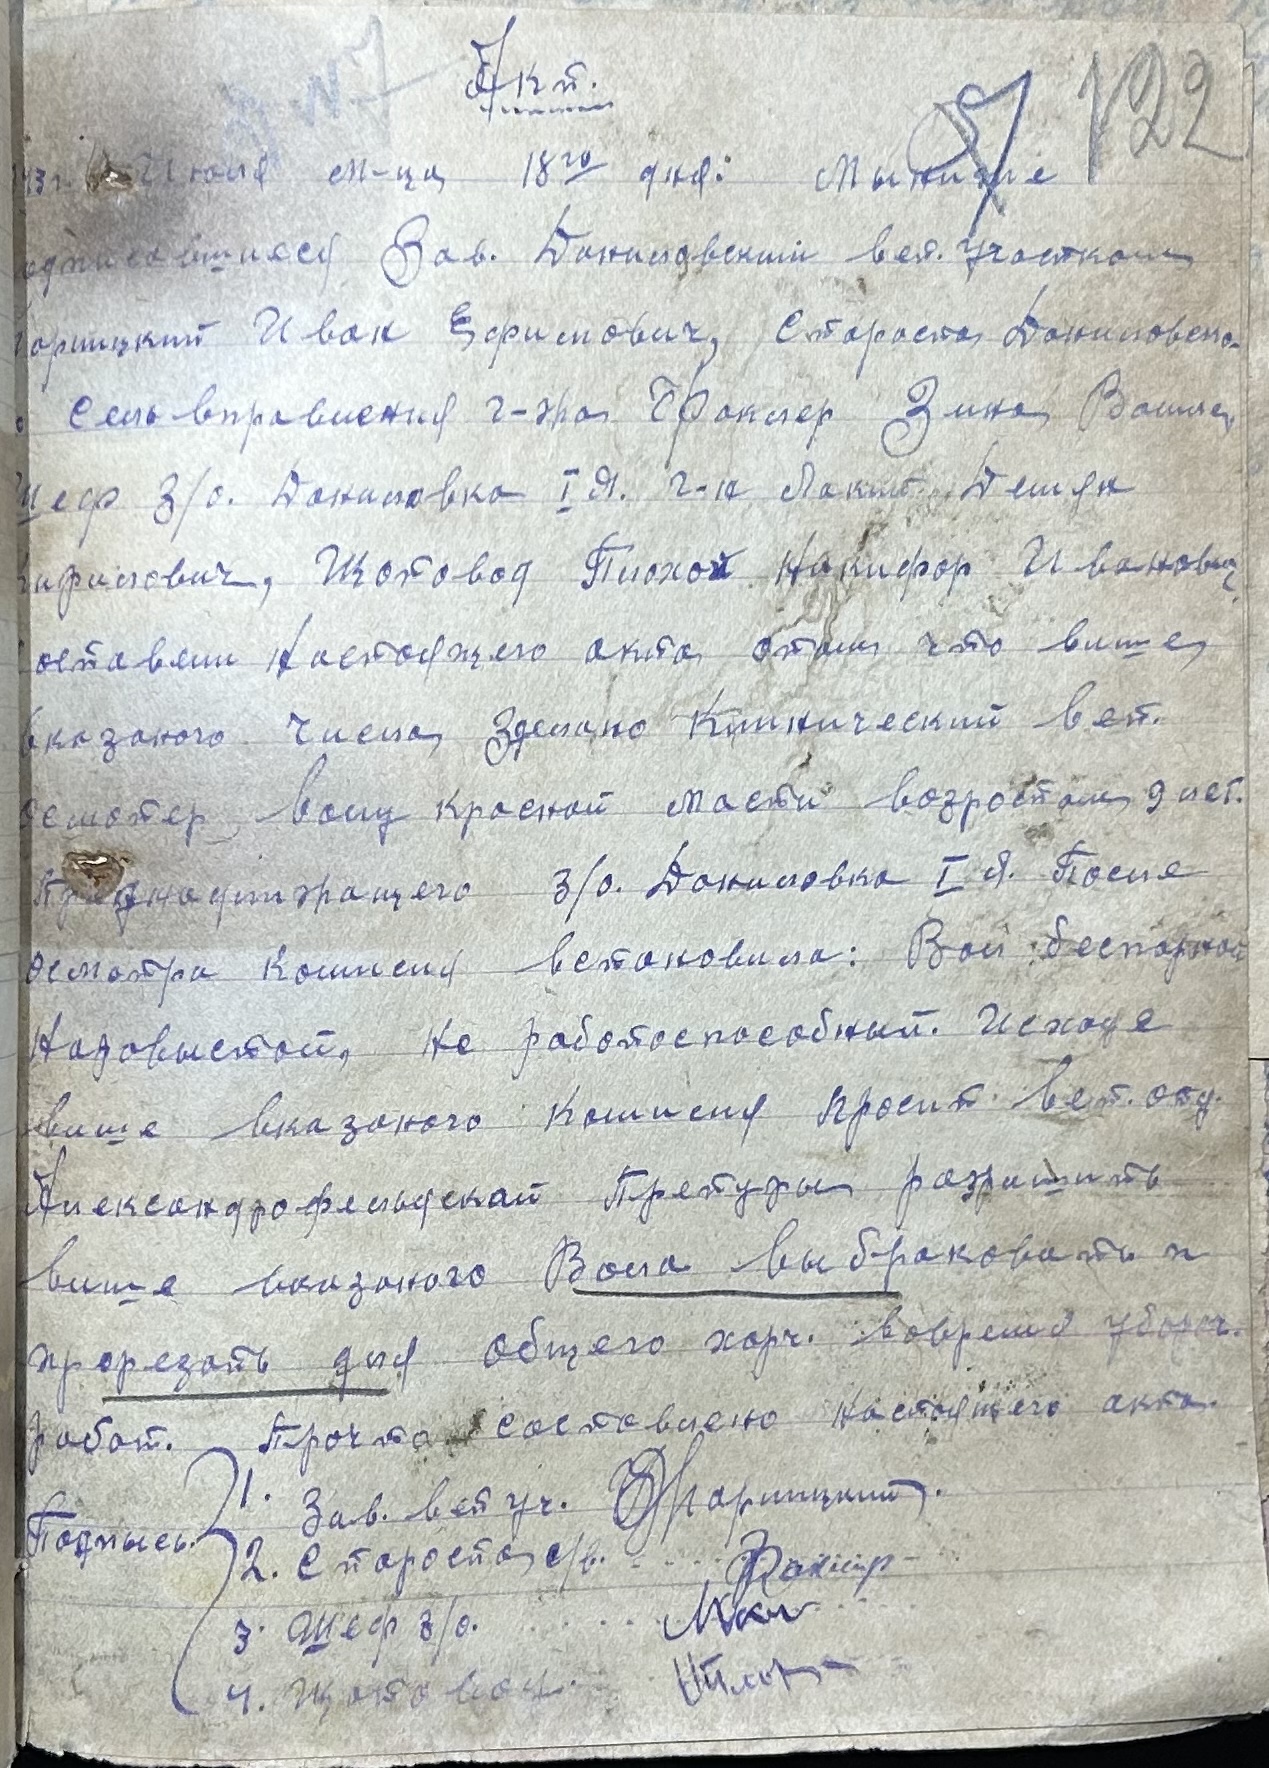 Акт.
122
Июля м-ца 18го дня: Мы ниже
Зав. Даниловский вет. участком
Иван Ефимович, Староста Даниловско-
Сельвправления г-н Факлер Зина
Шеф З/о. Даниловка I я. г-н Демян
Щотовод Плохой Никифор Иванович,
составели настоящего акта отом что више
вказаного числа, Зделано Клинический вет.
осмотер волу красной масти возростом 9 лет.
Принадлижащего з/о. Даниловка I я. После
осмотра комисия встановила: Вол беспорной
не работоспособный. Исходя
више вказаного комисия просит вет. отд.
Александрофельдской Претуры разришить
више вказаного Вола выбраковать и
прорезать для общего харч. вовремя убороч.
работ. Прочто составлено настоящего акта.
Подпысь. 1. Зав. вет уч.
2. Староста с/в. Факлер
3. Шеф з/о.
4. Щотовод.